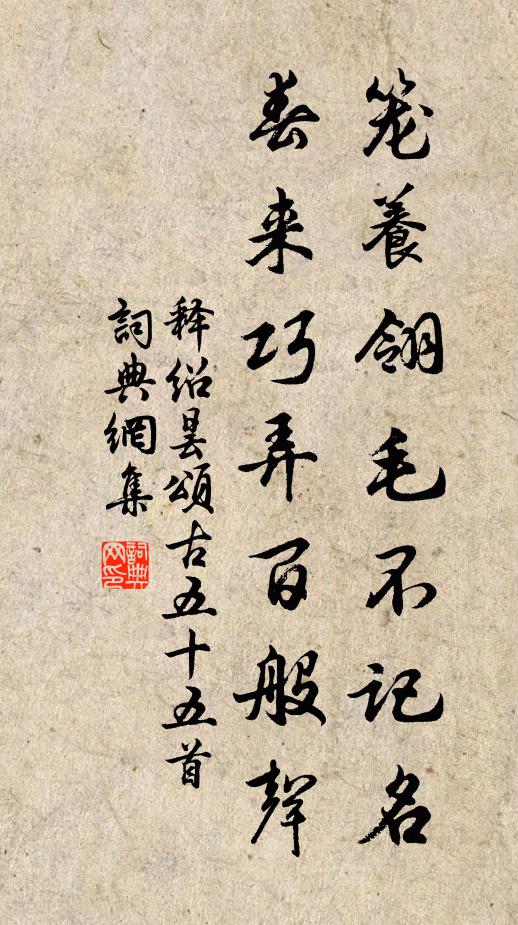 笼養翎毛不记名
春来巧弄百般聲
释绍曇頌古五十五首
詞典網集
詞典网印